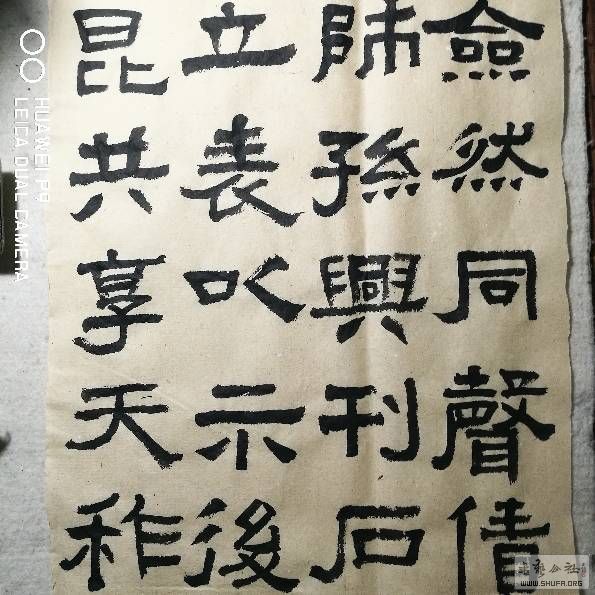 僉然同聲
師孫興刊石
立表以示後
昆共享天祚
HUAWEI P9
LEICA DUAL CAMERA
WWW.SHUFA.ORG